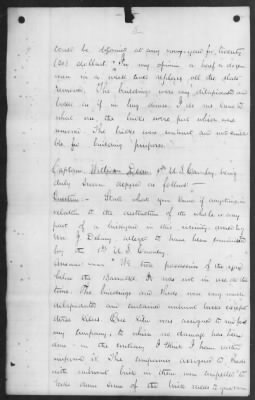 could be obtained at any navy-yard for twenty
(20) dollars. In my opinion a half a dozen
men in a week could replace all the slate
removed. The buildings were very dilapidated and
looked as if in long disuse. I do not know to
what use the bricks were put which were
removed. The bricks were unburnt and not suitable
for building purposes.
Captain William 1st U.S. Cavalry being
duly sworn deposed as follows:—
Question:— State what you know if anything in
relation to the destruction of the whole or any
part of a brickyard in this vicinity owned by
Wm. J. Delany, alleged to have been committed
by the 1st U.S. Cavalry
Answer:— We took possession of the yard
below the Barracks. It was not in use at the
time. The buildings and sheds were very much
dilapidated and contained unburnt bricks except
three kilns. One kiln was assigned to me for
my company, to which no damage has been
done — on the contrary I think I have rather
improved it. The companies assigned to sheds
with unburnt brick in them were compelled to
take down some of the brick racks to